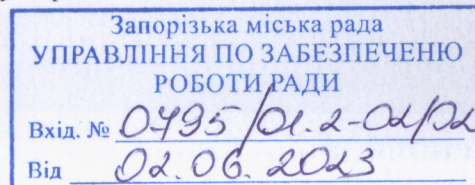 Запорізька міська рада
УПРАВЛІННЯ ПО ЗАБЕЗПЕЧЕНЮ
РОБОТИ РАДИ
Вхід. № 0795/01.2-02/02
Від 02.06.2023